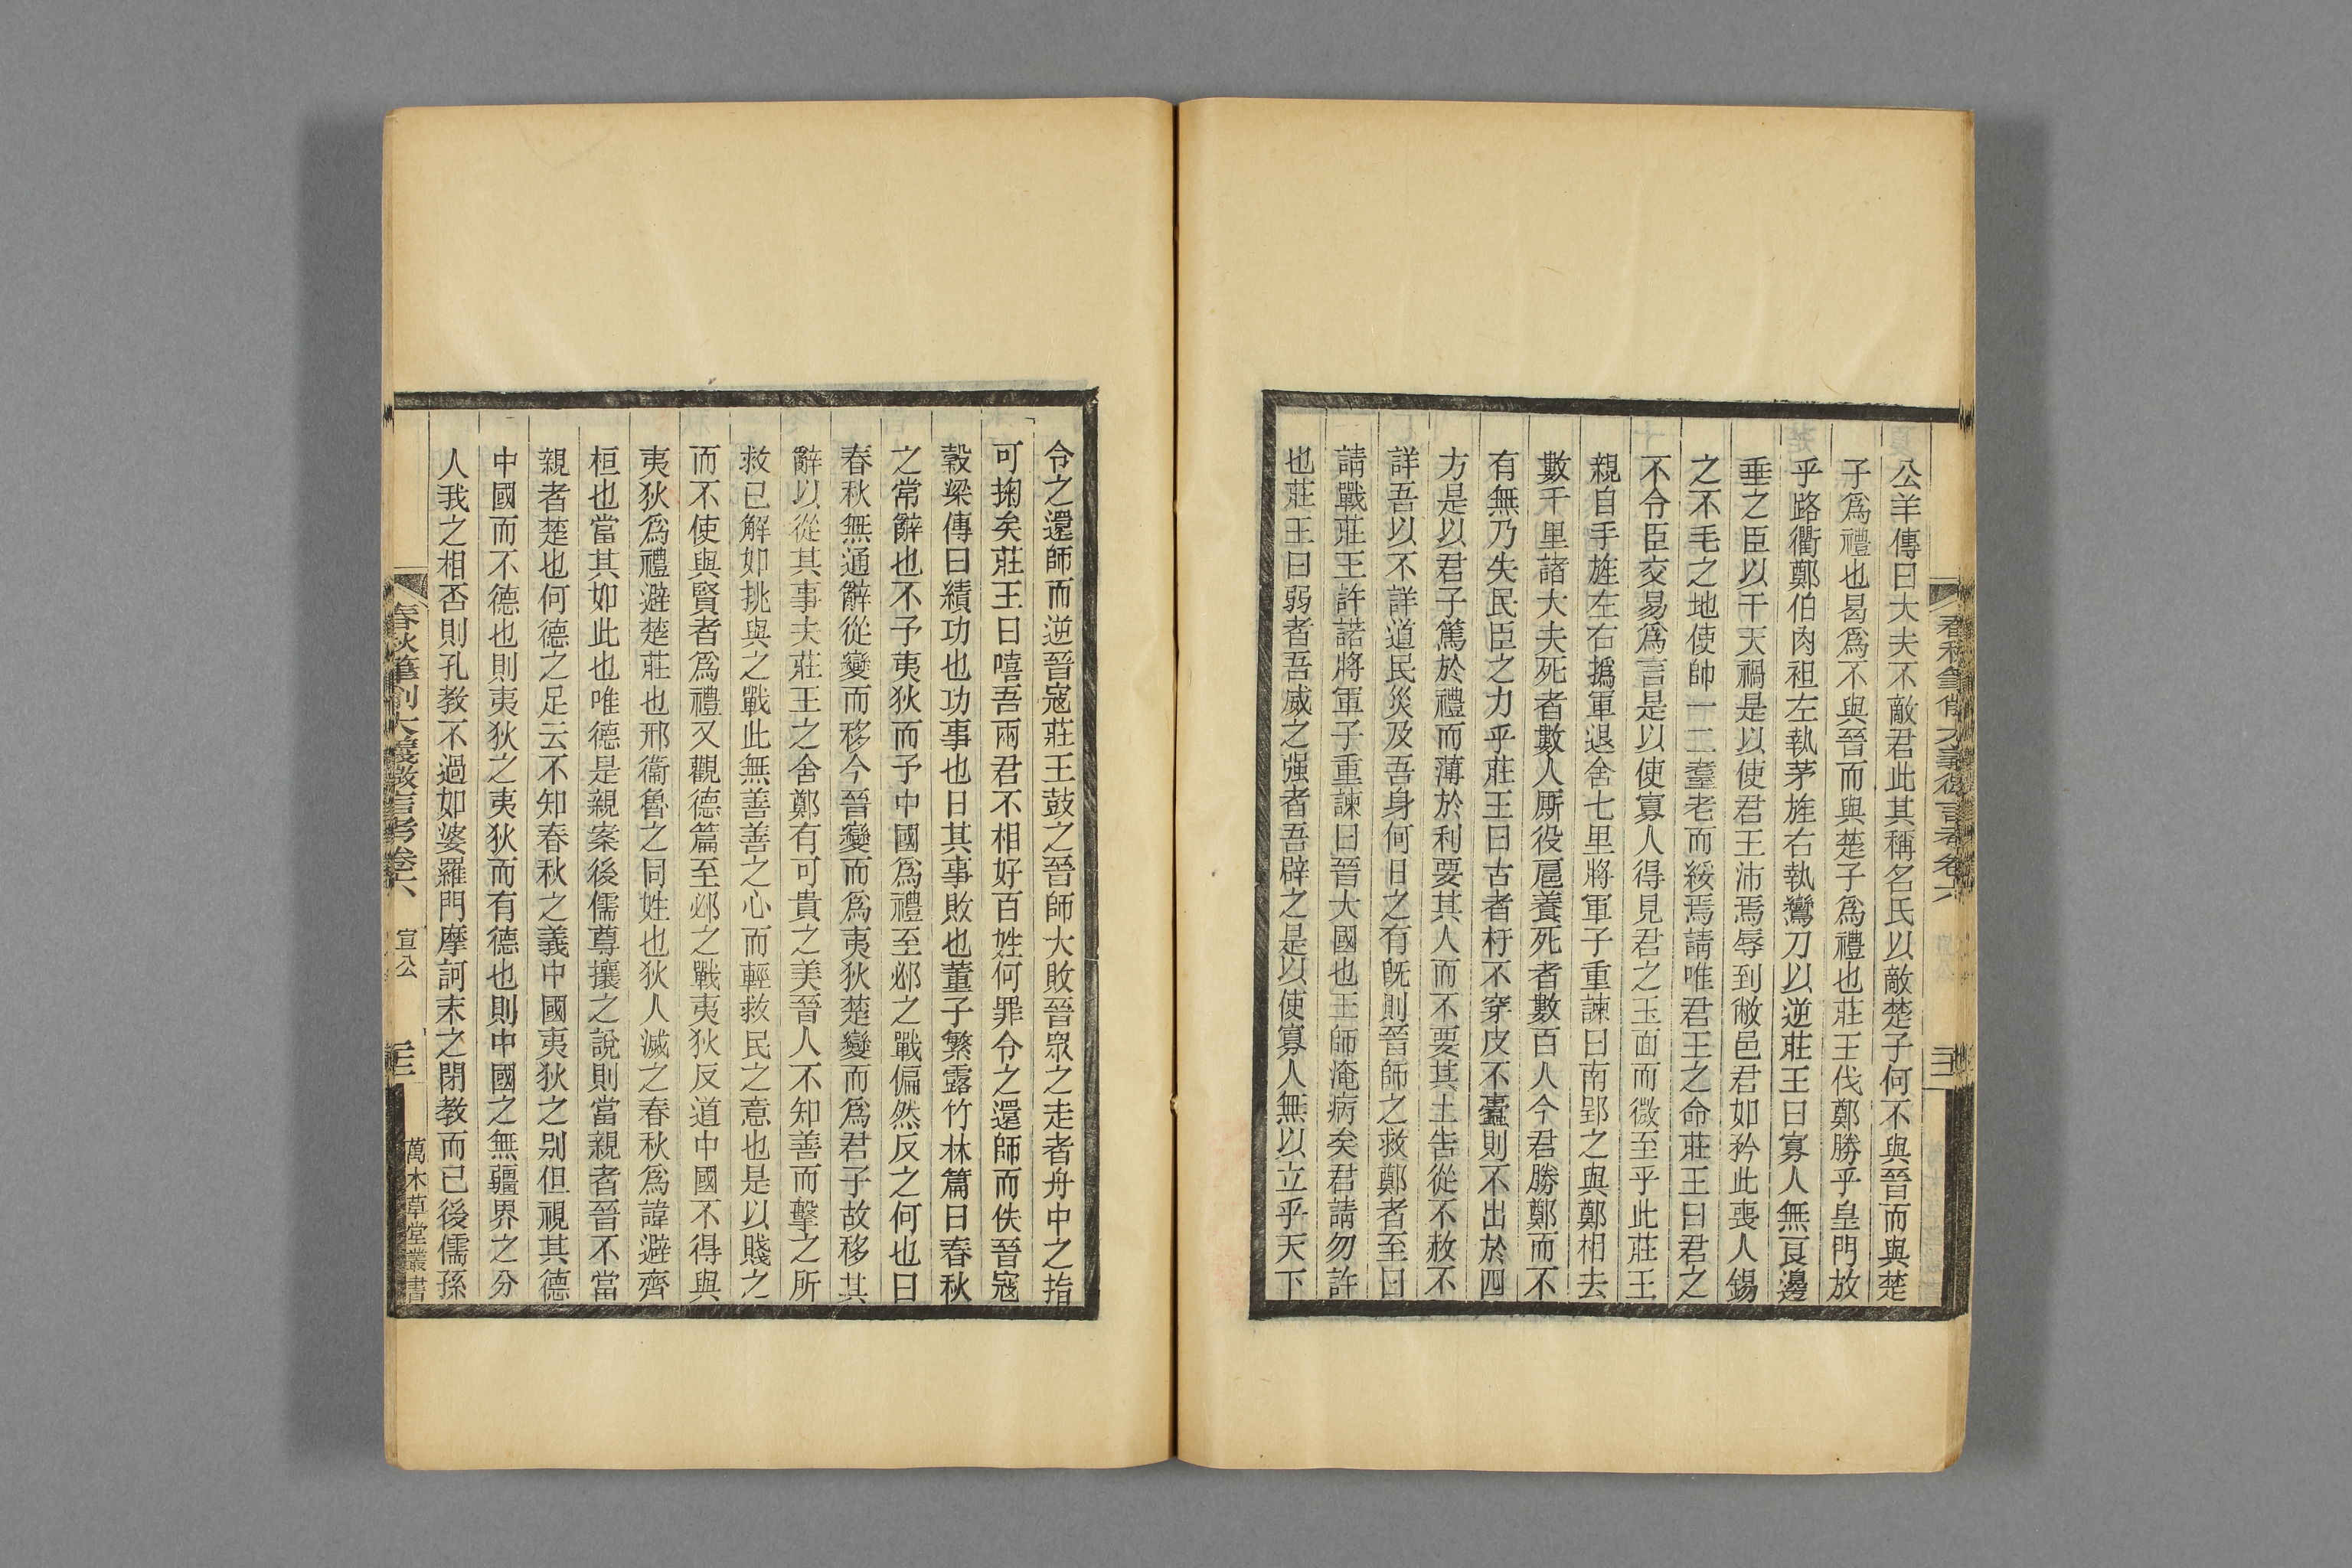 公羊傳曰大夫不敵君此其稱名氏以敵楚子何不與晉而與楚
子爲禮也曷爲不與晉而與楚子爲禮也莊王伐鄭勝乎皇門放
乎路衢鄭伯肉袒左執茅旌右執鸞刀以逆莊王曰寡人無良邊
垂之臣以干天禍是以使君王沛焉辱到敝邑君如矜此喪人錫
之不毛之地使帥一二耋老而綏焉請唯君王之命莊王曰君之
不令臣交易爲言是以使寡人得見君之玉面而微至乎此莊王
親自手旌左右撝軍退舍七里將軍子重諫曰南郢之與鄭相去
數千里諸大夫死者數人厮役扈養死者數百人今君勝鄭而不
有無乃失民臣之力乎莊王曰古者杅不穿皮不蠹則不出於四
方是以君子篤於禮而薄於利要其人而不要其土告從不赦不
詳吾以不詳道民災及吾身何日之有旣則晉師之救鄭者至曰
請戰莊王許諾將軍子重諫曰晉大國也王師淹病矣君請勿許
也莊王曰弱者吾威之强者吾辟之是以使寡人無以立乎天下
令之還師而逆晉寇莊王鼓之晉師大敗晉衆之走者舟中之指
可掬矣莊王曰嘻吾兩君不相好百姓何罪令之還師而佚晉寇
穀梁傳曰績功也功事也日其事敗也董子繁露竹林篇曰春秋
之常辭也不予夷狄而予中國爲禮至邲之戰偏然反之何也曰
春秋無通辭從變而移今晉變而爲夷狄楚變而爲君子故移其
辭以從其事夫莊王之舍鄭有可貴之美晉人不知善而擊之所
救已解如挑與之戰此無善善之心而輕救民之意也是以賤之
而不使與賢者爲禮又觀德篇至邲之戰夷狄反道中國不得與
夷狄爲禮避楚莊也邢衞魯之同姓也狄人滅之春秋爲諱避齊
桓也當其如此也唯德是親案後儒尊攘之說則當親者晉不當
親者楚也何德之足云不知春秋之義中國夷狄之别但視其德
中國而不德也則夷狄之夷狄而有德也則中國之無疆界之分
人我之相否則孔教不過如婆羅門摩訶末之閉教而已後儒孫
春秋筆削大義微言考卷六
宣公
萬木草堂叢書